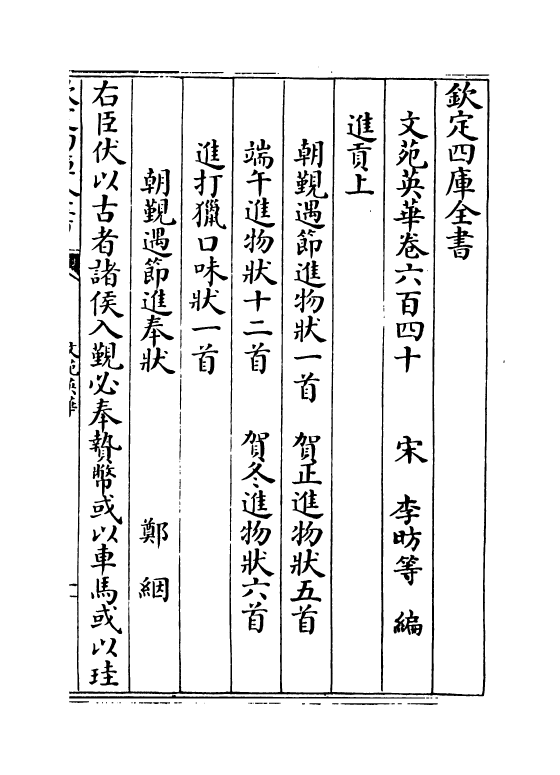 欽定四庫全書
文苑英華卷六百四十 宋 李昉等 編
進貢上
朝覲遇節進物狀一首 賀正進物狀五首
端午進物狀十二首 賀冬進物狀六首
進打獵口味狀一首
朝覲遇節進奉狀 鄭絪
右臣伏以古者諸侯入覲必奉贄幣或以車馬或以珪